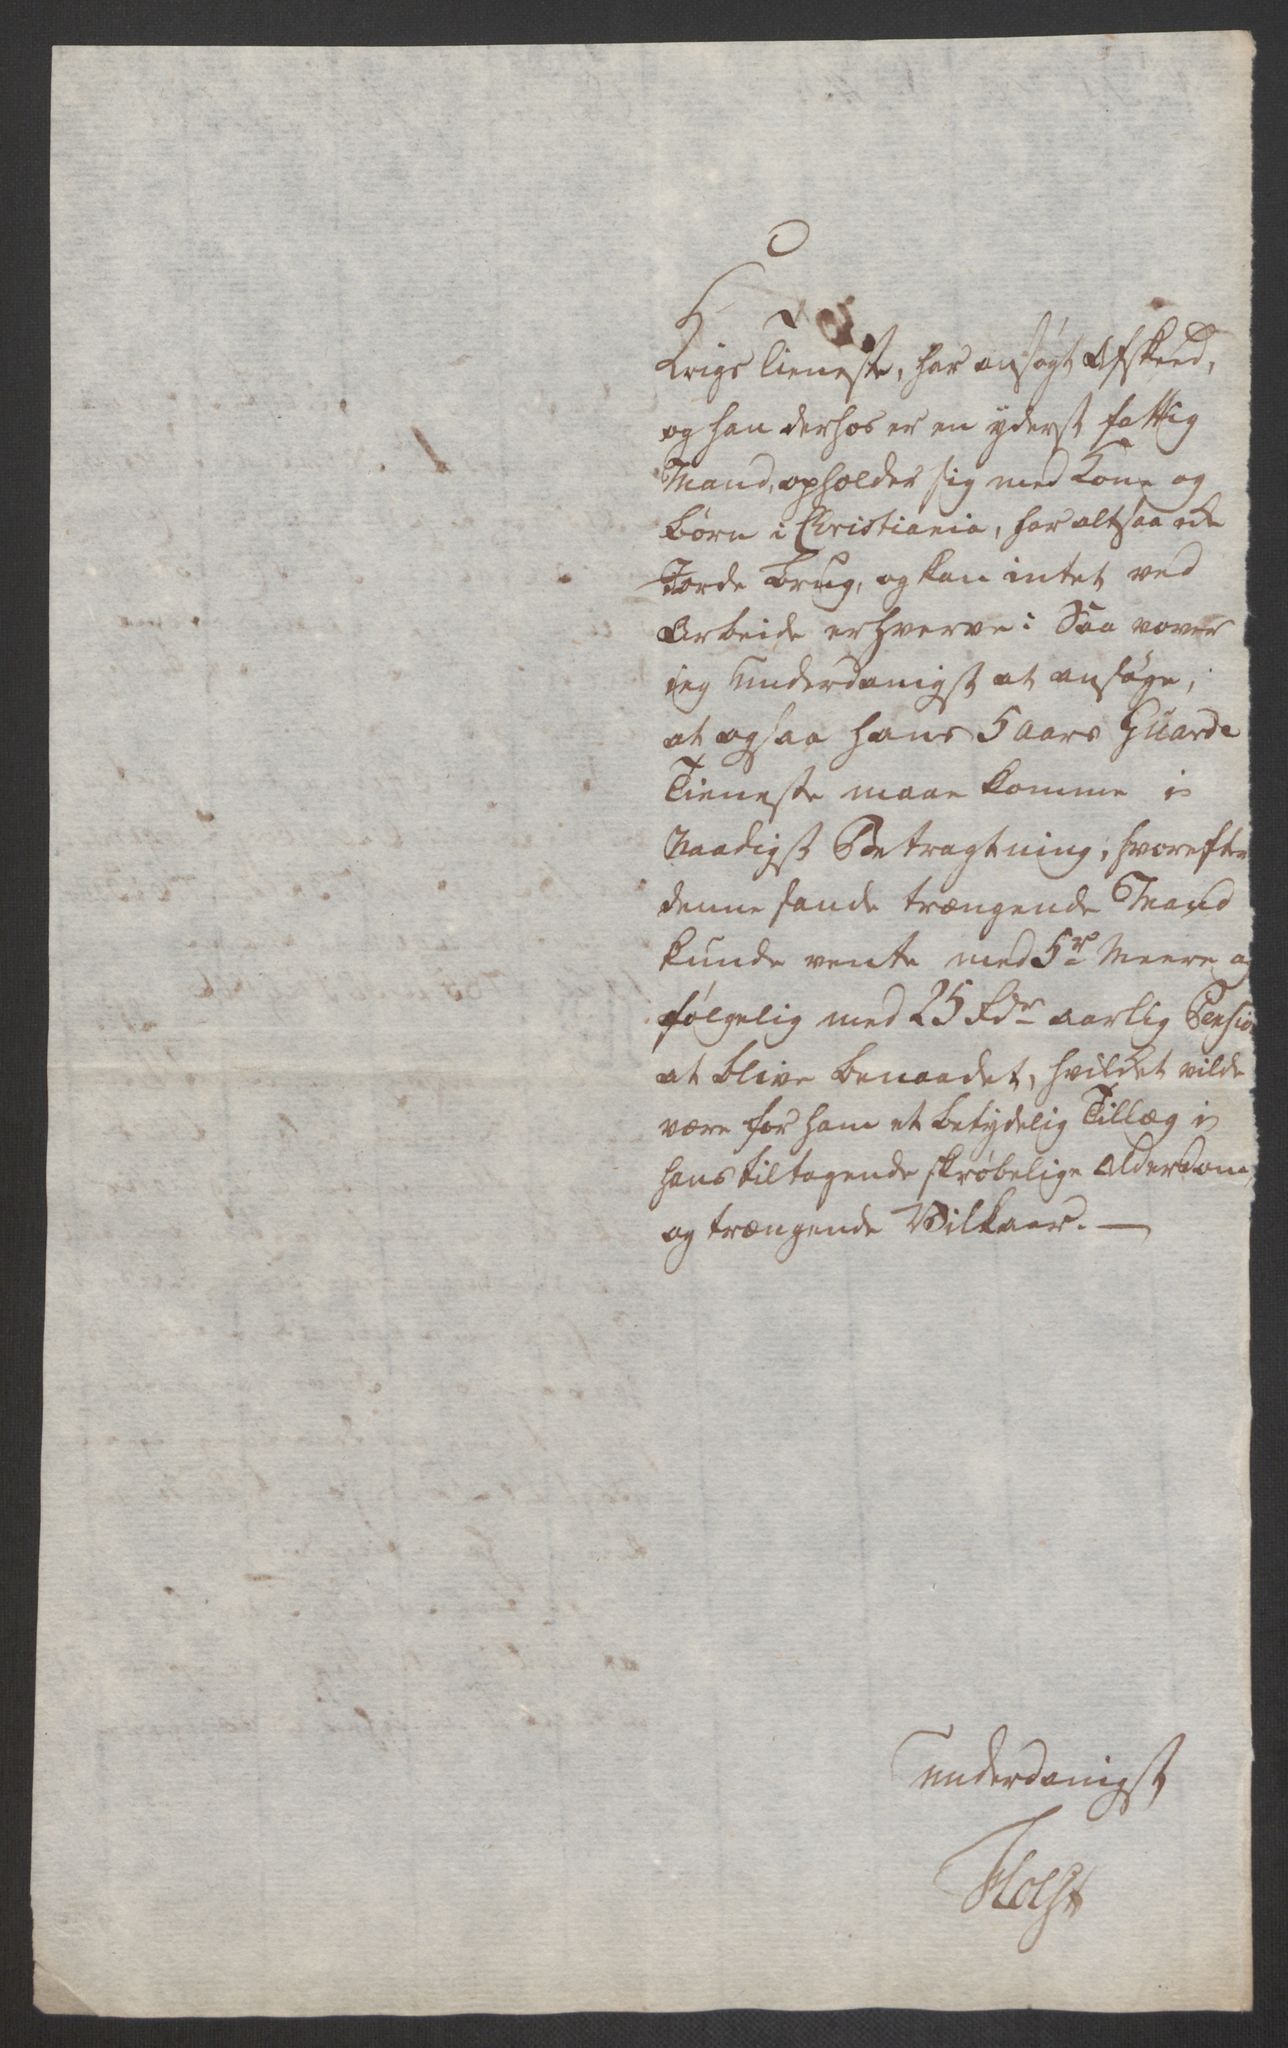 Krigs Tieneste, har ansøgt Afskeed,
og han derhos er en yderst fattig
Mand, opholder sig med Kone og
Børn i Christiania, har altsaa
Jorde Brug, og kan intet ved
Arbeide erhverve: Saa vover
ieg underdanigst at ansøge,
at ogsaa hans 5 aars Guarde
Tieneste maae komme i
Naadigst Betragtning, hvorefter
denne sande trængende Mand
kunde vente med 5r Meere og
følgelig med 25 Rdr aarlig Pensio
at blive benaadet, hvilket vilde
være for ham et betydelig Tillæg i
hans tiltagende skrøbelige Alderdom,
og trængende Vilkaar. —
underdanigst
Holst